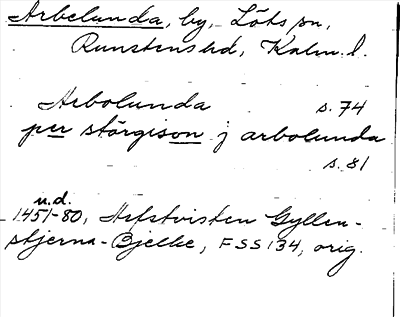 Arbelunda, by, Löts sn,
Runstens hd, Kalm. l.
Arbolunda s. 74
per störgison j arbolunda
s. 81
u.d.
1451-80, Arfstvisten Gyllen-
stjerna-Bjelke, FSS 134, orig.